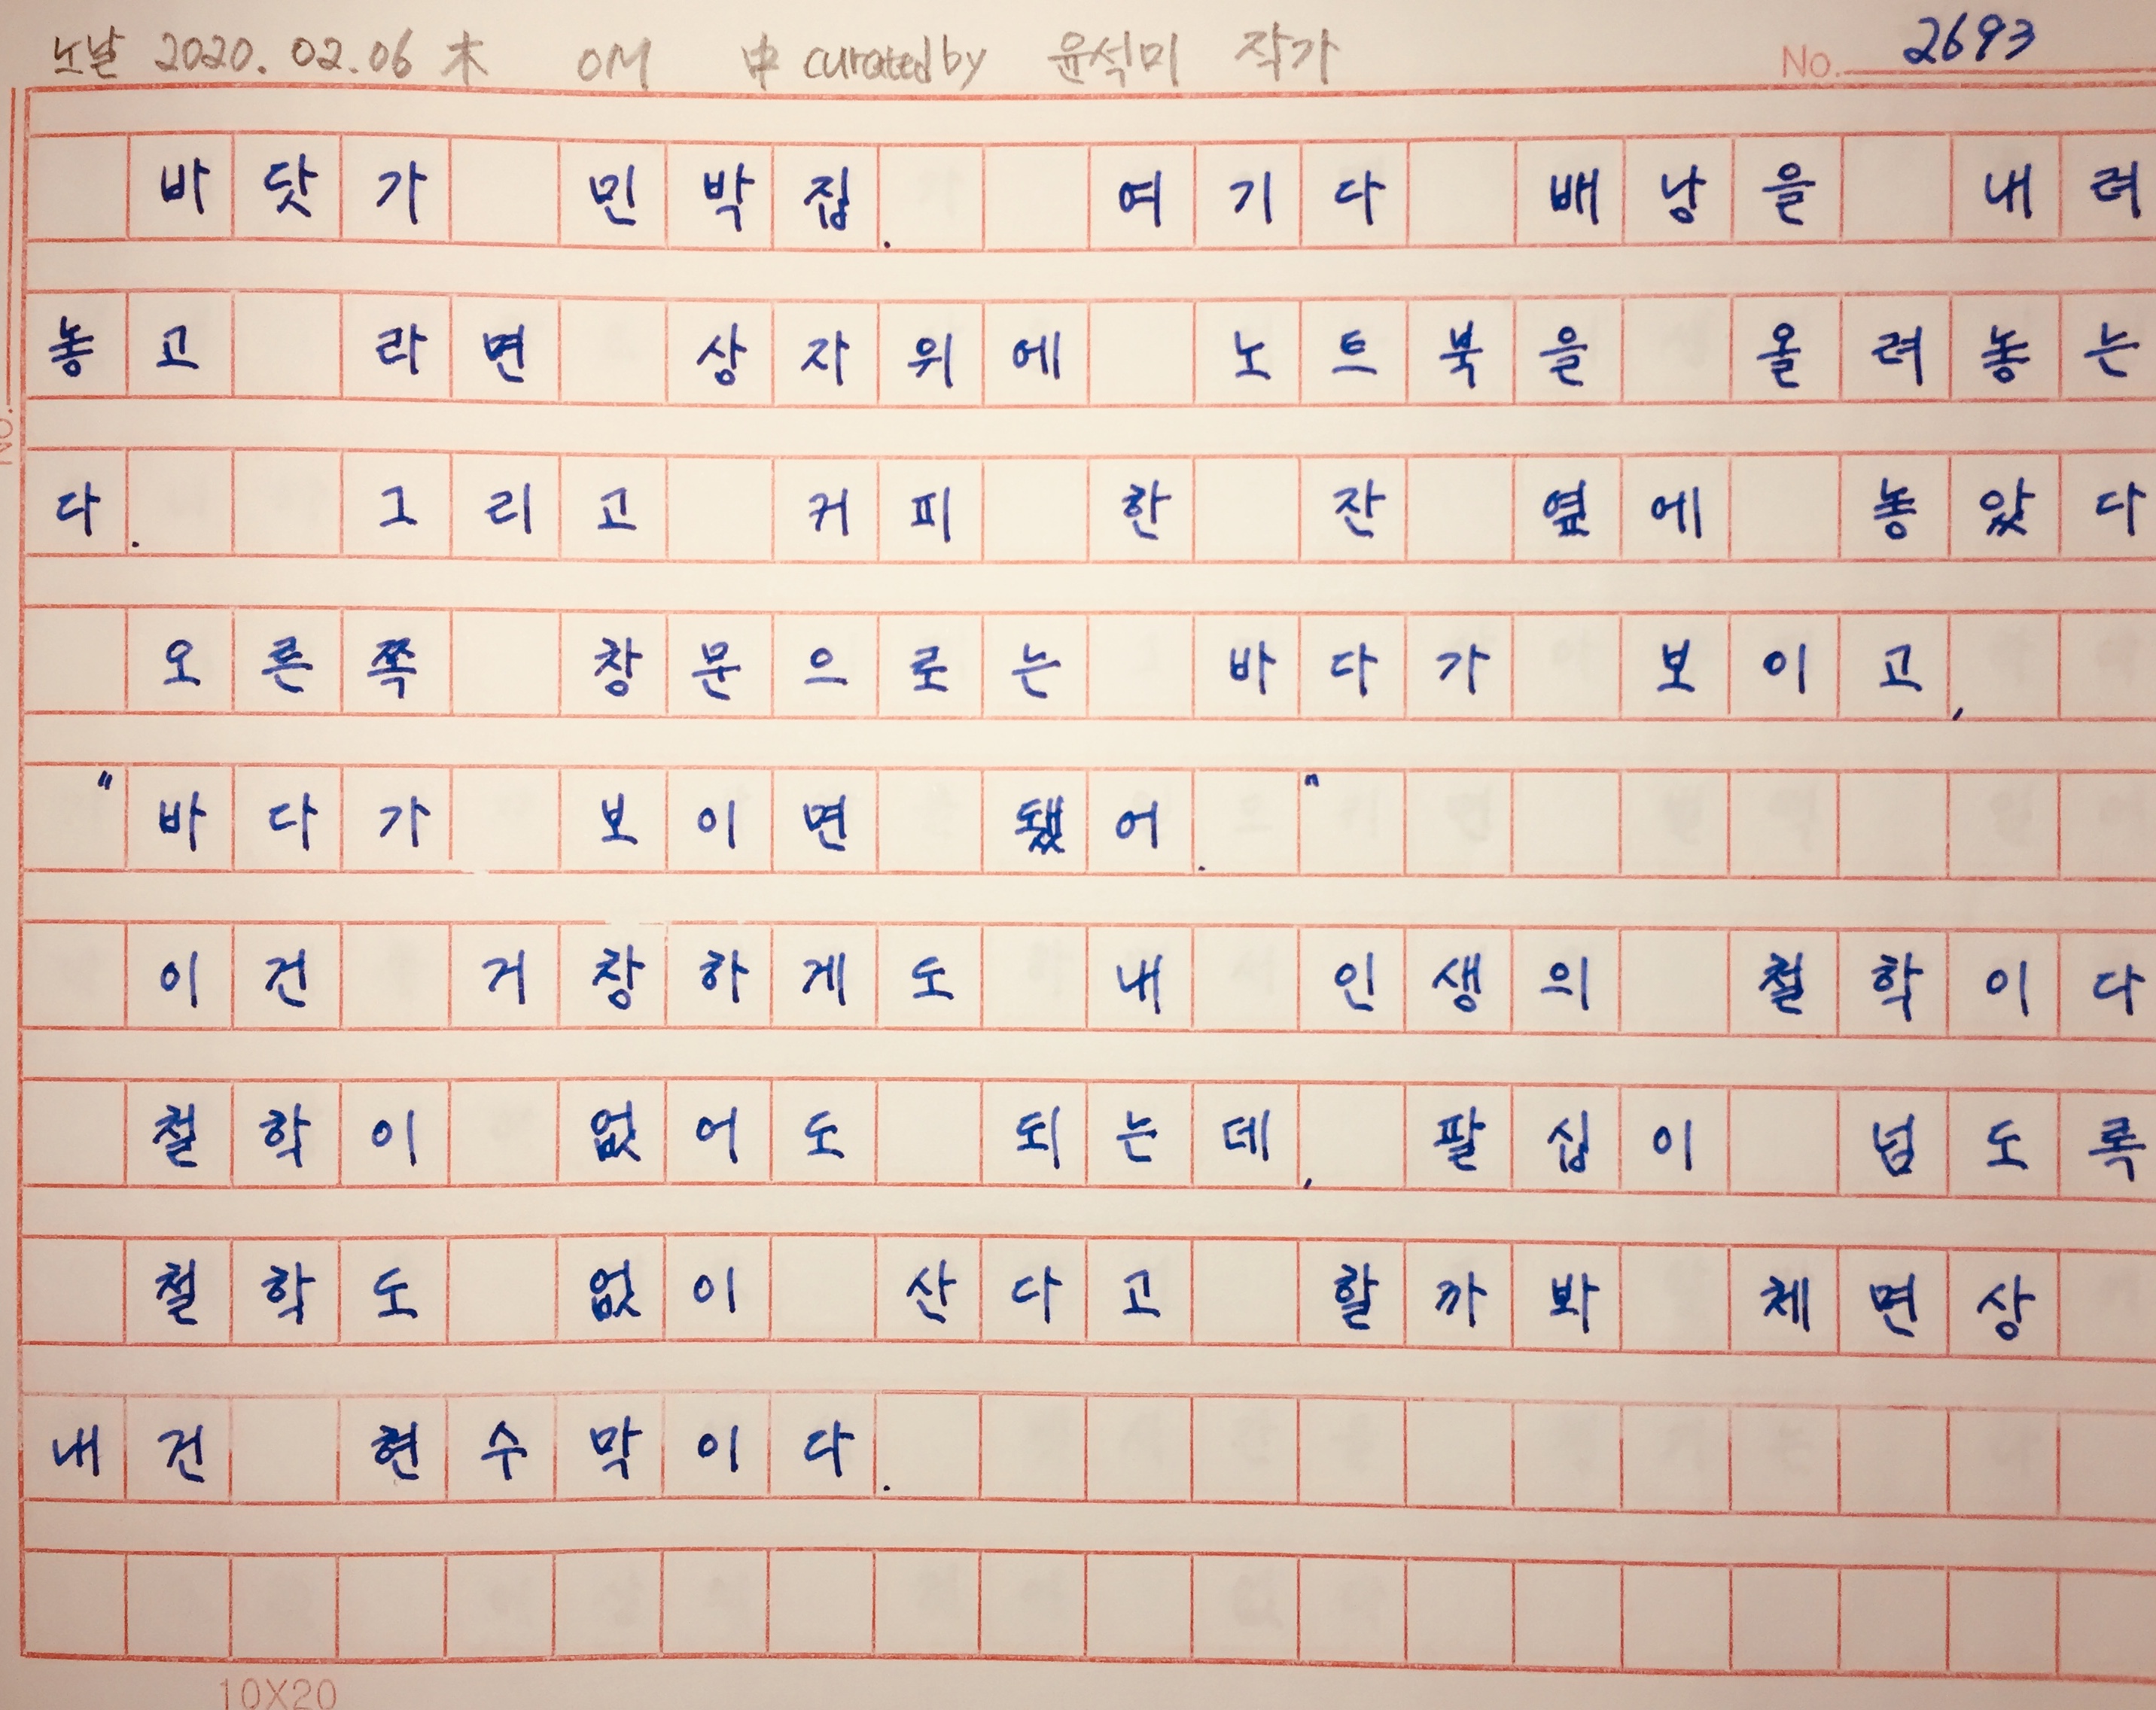 노날 2020. 02.06 木 OM 中 curated by 윤석미 작가 No. 2693
바닷가 민박집. 여기다 배낭을 내려
놓고 라면 상자위에 노트북을 올려놓는
다. 그리고 커피 한 잔 옆에 놓았다
오른쪽 창문으로는 바다가 보이고,
"바다가 보이면 됐어."
이건 거창하게도 내 인생의 철학이다
철학이 없어도 되는데, 팔십이 넘도록
철학도 없이 산다고 할까봐 체면상
내건 현수막이다.
10X20
No.